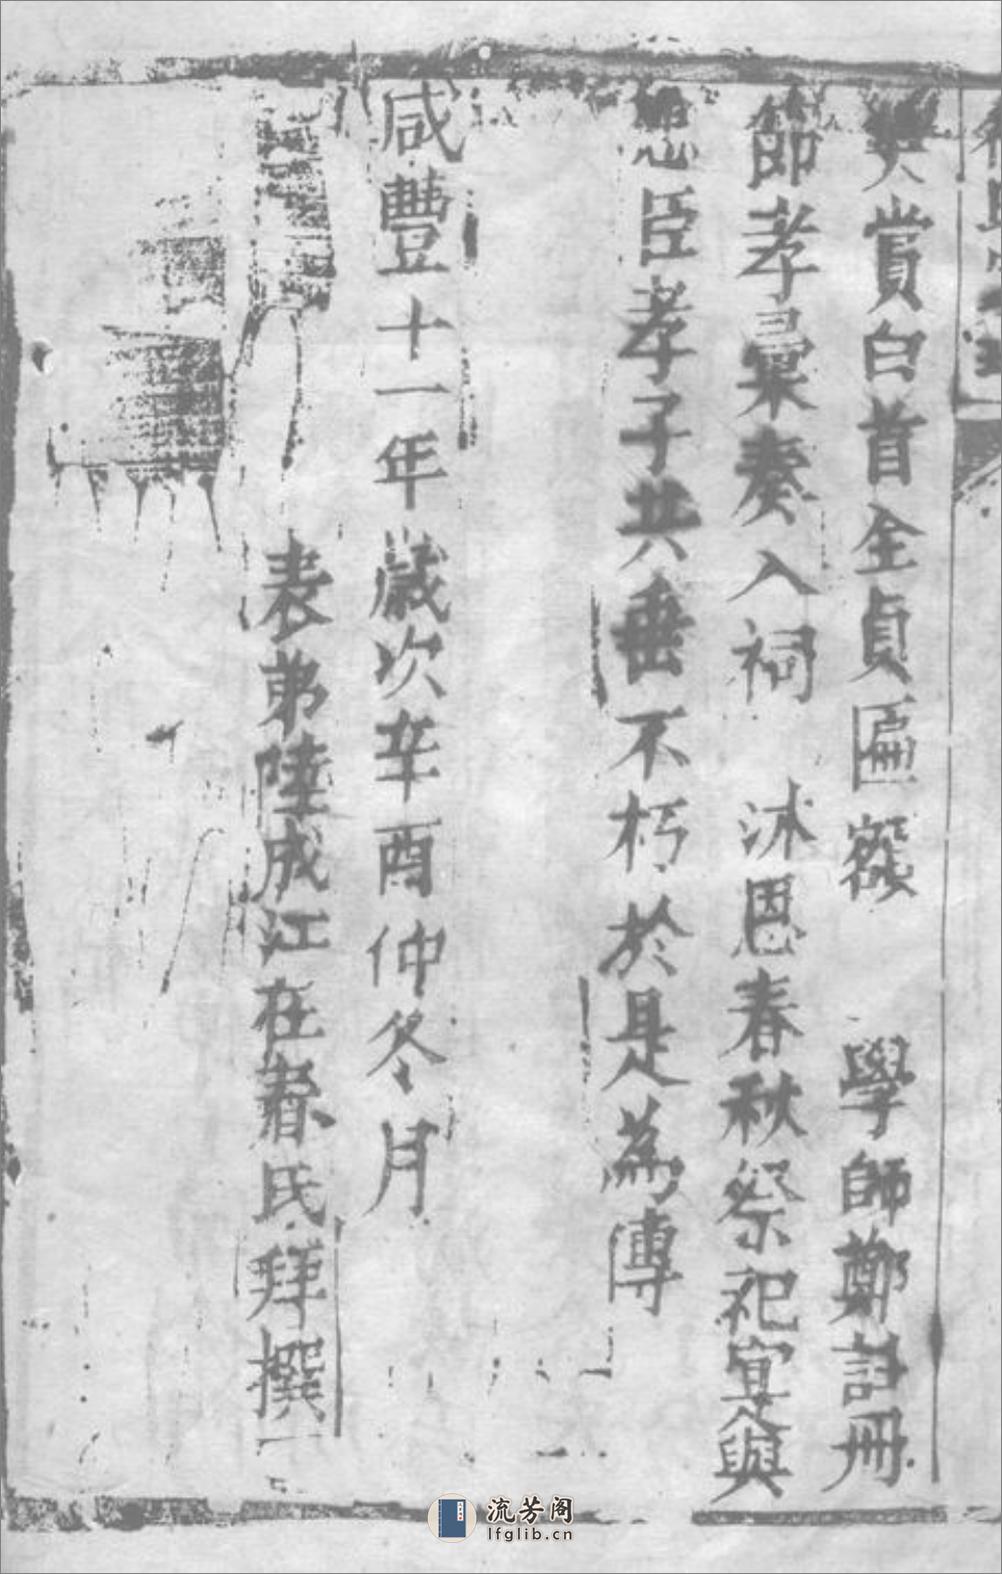 奬賞白首全貞匾額 學師鄭註冊
節孝彙奏入祠 沐恩春秋祭祀宜與
忠臣孝子共垂不朽於是為傳
咸豐十一年歲次辛酉仲冬月
表弟陸成江在春氏拜撰
流芳阁
lfglib.cn